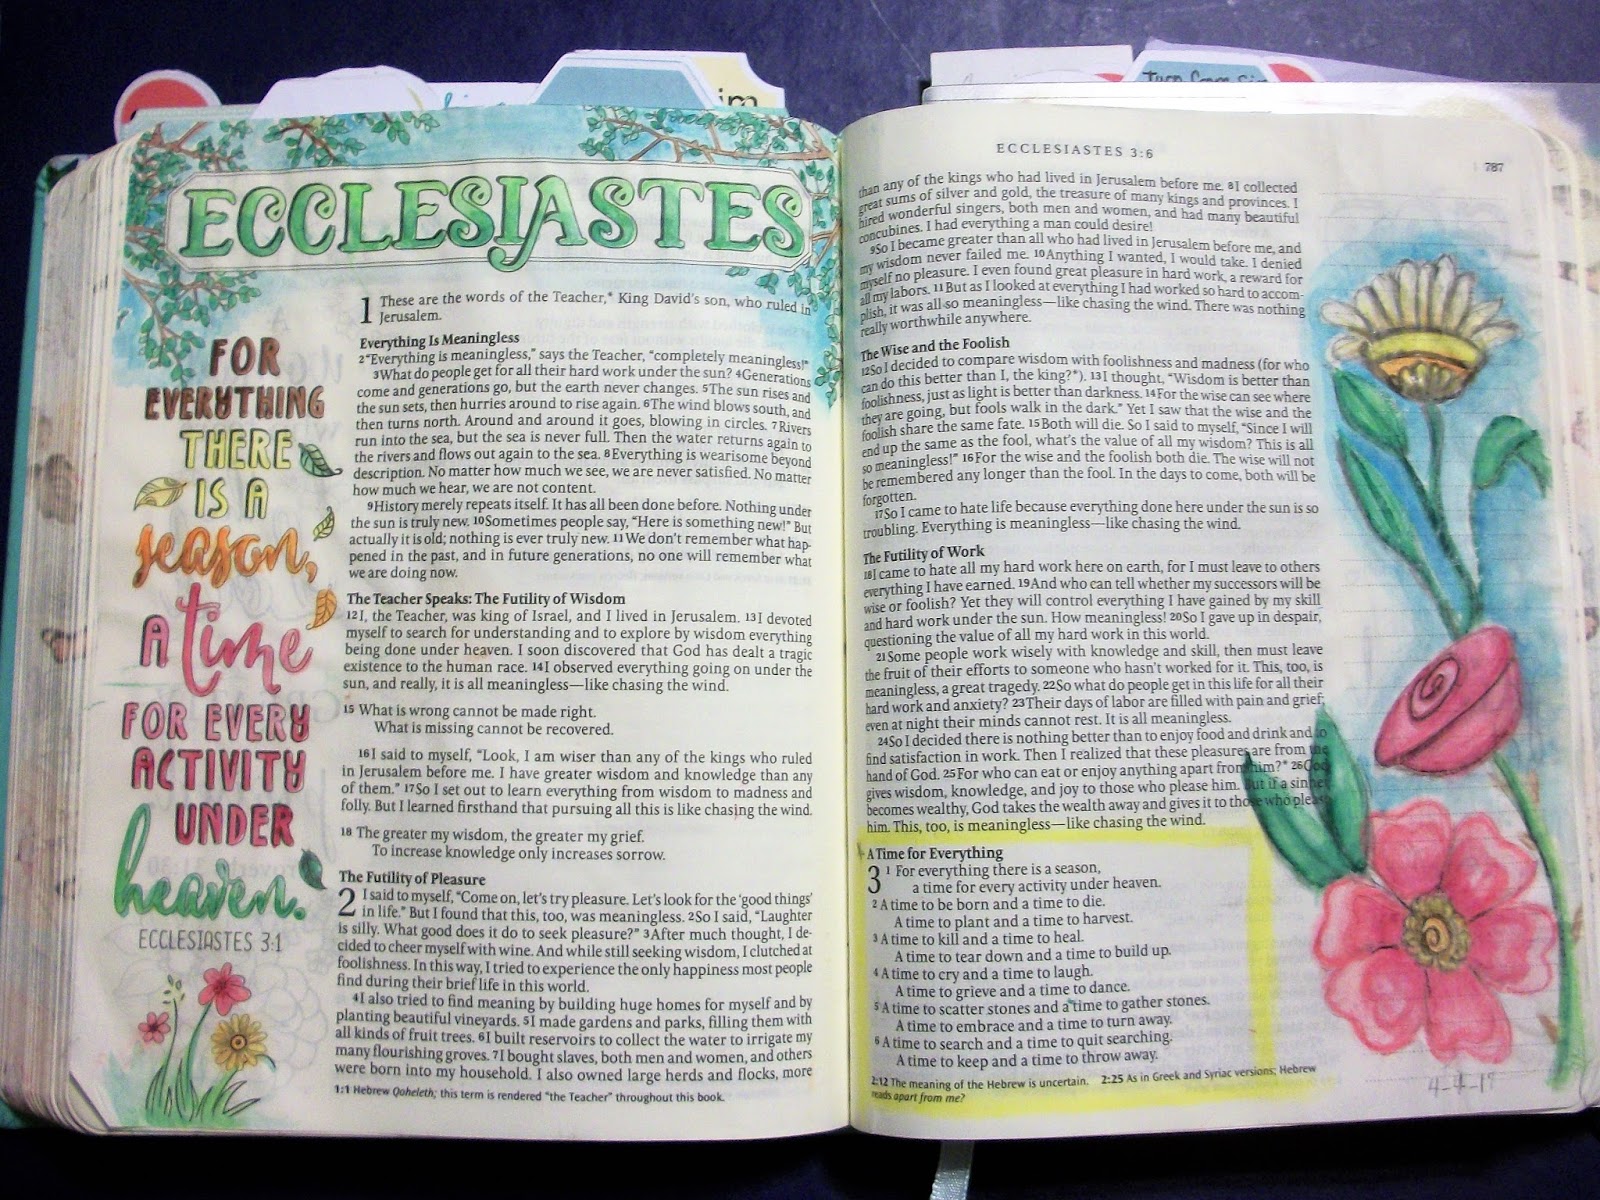 im
ECCLESIASTES
FOR
EVERYTHING
THERE
IS A
season,
A time
FOR EVERY
ACTIVITY
UNDER
heaven.
ECCLESIASTES 3:1
1 These are the words of the Teacher,* King David's son, who ruled in
Jerusalem.
Everything Is Meaningless
2"Everything is meaningless," says the Teacher, "completely meaningless!"
3What do people get for all their hard work under the sun? 4Generations
come and generations go, but the earth never changes. 5The sun rises and
the sun sets, then hurries around to rise again. 6The wind blows south, and
then turns north. Around and around it goes, blowing in circles. 7Rivers
run into the sea, but the sea is never full. Then the water returns again to
the rivers and flows out again to the sea. 8Everything is wearisome beyond
description. No matter how much we see, we are never satisfied. No matter
how much we hear, we are not content.
9History merely repeats itself. It has all been done before. Nothing under
the sun is truly new. 10Sometimes people say, "Here is something new!" But
actually it is old; nothing is ever truly new. 11We don't remember what hap-
pened in the past, and in future generations, no one will remember what
we are doing now.
The Teacher Speaks: The Futility of Wisdom
12I, the Teacher, was king of Israel, and I lived in Jerusalem. 13I devoted
myself to search for understanding and to explore by wisdom everything
being done under heaven. I soon discovered that God has dealt a tragic
existence to the human race. 14I observed everything going on under the
sun, and really, it is all meaningless—like chasing the wind.
15 What is wrong cannot be made right.
What is missing cannot be recovered.
16I said to myself, "Look, I am wiser than any of the kings who ruled
in Jerusalem before me. I have greater wisdom and knowledge than any
of them." 17So I set out to learn everything from wisdom to madness and
folly. But I learned firsthand that pursuing all this is like chasing the wind.
18 The greater my wisdom, the greater my grief.
To increase knowledge only increases sorrow.
The Futility of Pleasure
2 I said to myself, "Come on, let's try pleasure. Let's look for the 'good things'
in life." But I found that this, too, was meaningless. 2So I said, "Laughter
is silly. What good does it do to seek pleasure?" 3After much thought, I de-
cided to cheer myself with wine. And while still seeking wisdom, I clutched at
foolishness. In this way, I tried to experience the only happiness most people
find during their brief life in this world.
4I also tried to find meaning by building huge homes for myself and by
planting beautiful vineyards. 5I made gardens and parks, filling them with
all kinds of fruit trees. 6I built reservoirs to collect the water to irrigate my
many flourishing groves. 7I bought slaves, both men and women, and others
were born into my household. I also owned large herds and flocks, more
1:1 Hebrew Qoheleth; this term is rendered "the Teacher" throughout this book.
ECCLESIASTES 3:6
787
than any of the kings who had lived in Jerusalem before me. 8I collected
great sums of silver and gold, the treasure of many kings and provinces. I
hired wonderful singers, both men and women, and had many beautiful
concubines. I had everything a man could desire!
9So I became greater than all who had lived in Jerusalem before me, and
my wisdom never failed me. 10Anything I wanted, I would take. I denied
myself no pleasure. I even found great pleasure in hard work, a reward for
all my labors. 11 But as I looked at everything I had worked so hard to accom-
plish, it was all so meaningless—like chasing the wind. There was nothing
really worthwhile anywhere.
The Wise and the Foolish
12So I decided to compare wisdom with foolishness and madness (for who
can do this better than I, the king?*). 13I thought, "Wisdom is better than
foolishness, just as light is better than darkness. 14For the wise can see where
they are going, but fools walk in the dark." Yet I saw that the wise and the
foolish share the same fate. 15Both will die. So I said to myself, "Since I will
end up the same as the fool, what's the value of all my wisdom? This is all
so meaningless!" 16For the wise and the foolish both die. The wise will not
be remembered any longer than the fool. In the days to come, both will be
forgotten.
17So I came to hate life because everything done here under the sun is so
troubling. Everything is meaningless—like chasing the wind.
The Futility of Work
18I came to hate all my hard work here on earth, for I must leave to others
everything I have earned. 19And who can tell whether my successors will be
wise or foolish? Yet they will control everything I have gained by my skill
and hard work under the sun. How meaningless! 20So I gave up in despair,
questioning the value of all my hard work in this world.
21Some people work wisely with knowledge and skill, then must leave
the fruit of their efforts to someone who hasn't worked for it. This, too, is
meaningless, a great tragedy. 22So what do people get in this life for all their
hard work and anxiety? 23Their days of labor are filled with pain and grief;
even at night their minds cannot rest. It is all meaningless.
24So I decided there is nothing better than to enjoy food and drink and to
find satisfaction in work. Then I realized that these pleasures are from the
hand of God. 25For who can eat or enjoy anything apart from him?* 26God
gives wisdom, knowledge, and joy to those who please him. But if a sinner
becomes wealthy, God takes the wealth away and gives it to those who please
him. This, too, is meaningless—like chasing the wind.
A Time for Everything
3 1 For everything there is a season,
a time for every activity under heaven.
2 A time to be born and a time to die.
A time to plant and a time to harvest.
3 A time to kill and a time to heal.
A time to tear down and a time to build up.
4 A time to cry and a time to laugh.
A time to grieve and a time to dance.
5 A time to scatter stones and a time to gather stones.
A time to embrace and a time to turn away.
6 A time to search and a time to quit searching.
A time to keep and a time to throw away.
2:12 The meaning of the Hebrew is uncertain. 2:25 As in Greek and Syriac versions; Hebrew
reads apart from me?
4-4-17